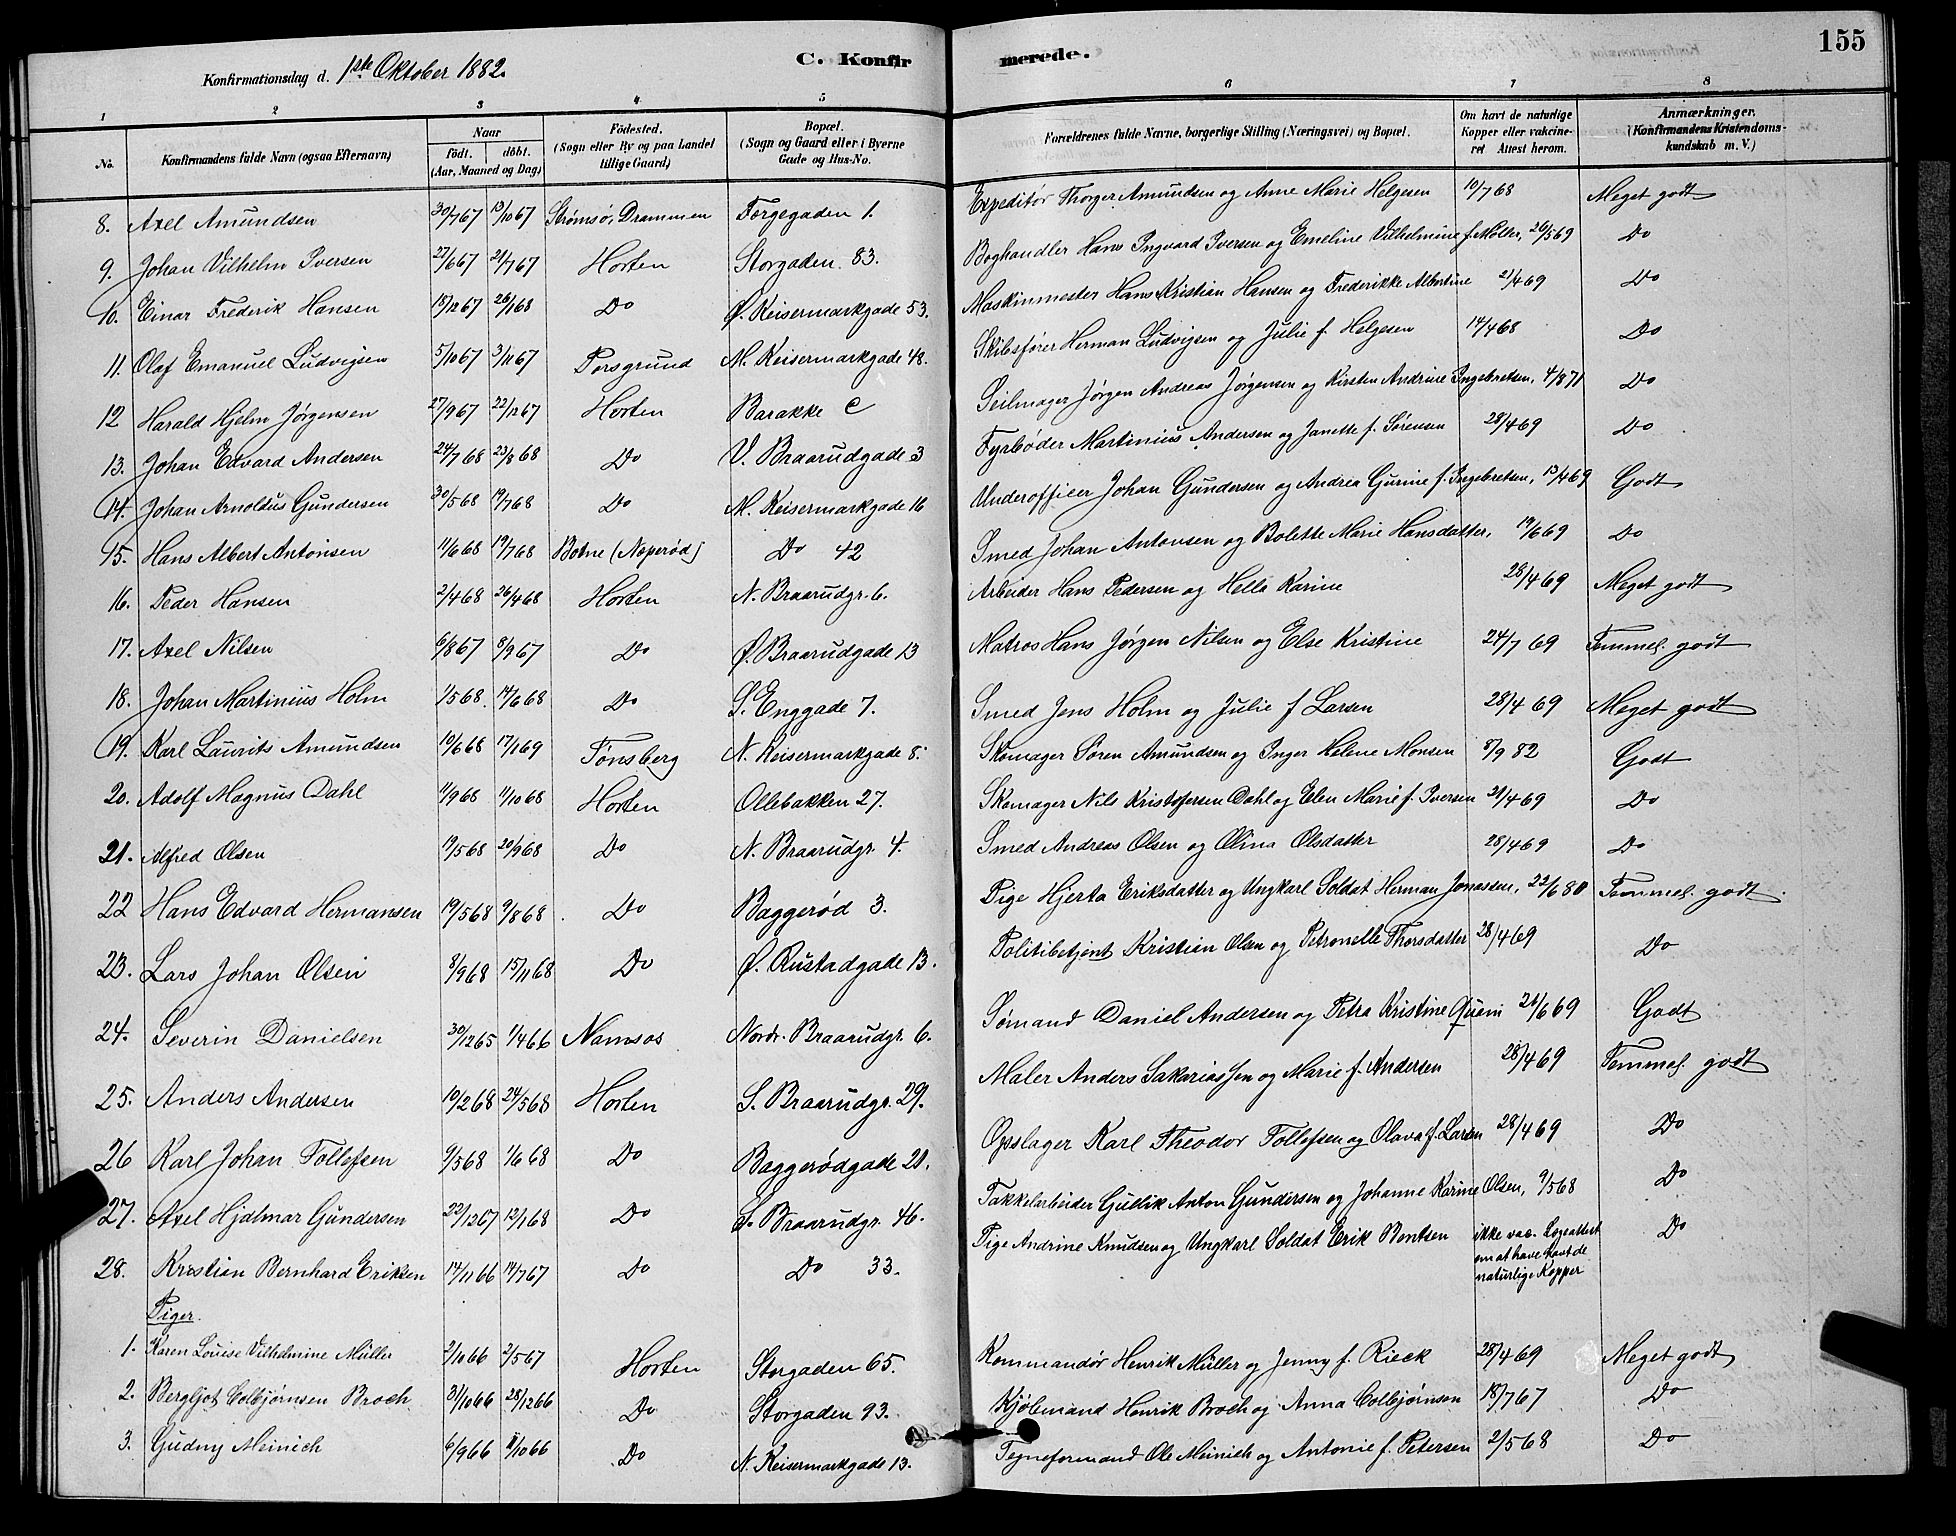 155
Konfirmationsdag d. 1ste Oktober 1882.
C. Konfirmerede.
1 2 3 4 5 6 7 8
No. Konfirmandens fulde Navn (ogsaa Efternavn) Naar født. døbt. (Aar, Maaned og Dag) Fødested. (Sogn eller By og paa Landet tillige Gaard) Bopæl. (Sogn og Gaard eller i Byerne Gade og Hus-No. Forældrenes fulde Navne, borgerlige Stilling (Næringsvei) og Bopæl. Om havt de naturlige Kopper eller vakcineret Attest herom. Anmærkninger. (Konfirmandens Kristendomskundskab m. V.)
8. Axel Amundsen 30/7 67 13/10 67 Strømsø, Drammen Torgegaden 1. Expeditør Thorger Amundsen og Anne Marie Helgesen 10/7 68 Meget godt
9. Johan Vilhelm Iversen 27/6 67 21/7 67 Horten Storgaden 83. Boghandler Hans Ingvard Iversen og Emeline Vilhelmine f. Møller, 26/5 69 Do
10. Einar Frederik Hansen 18/12 67 26/1 68 Do Ø. Keisermarkgade 53. Maskinmester Hans Kristian Hansen og Frederikke Albertine 21/4 69 Do
11. Olaf Emanuel Ludvigsen 5/10 67 3/11 67 Porsgrund M. Keisermarkgade 48. Skibsfører Herman Ludvigsen og Julie f. Helgesen 14/4 68 Do
12 Harald Hjelm Jørgensen 27/9 67 22/12 67 Horten Barakke C Seilmager Jørgen Andreas Jørgensen og Kirsten Andrine Ingebretsen, 4/8 71 Do
13. Johan Edvard Andersen 24/7 68 23/8 68 Do V. Braarudgade 3 Fyrbøder Martinius Andersen og Janette f. Sørensen 28/4 69 Do
14. Johan Arnoldus Gundersen 30/5 68 19/7 68 Do M. Keisermarkgade 16 Underofficer Johan Gundersen og Andrea Gurine f. Ingebretsen, 13/4 69 Godt
15. Hans Albert Antonsen 11/6 68 19/7 68 Botne (Neperød) Do 42 Smed Johan Antonsen og Bolette Marie Hansdatter, 19/6 69 Do
16. Peder Hansen 2/4 68 26/4 68 Horten N. Braarudgr. 6. Arbeider Hans Pedersen og Hella Karine 28/4 69 Meget godt
17. Axel Nilsen 6/8 67 8/9 67 Do Ø. Braarudgade 13 Matros Hans Jørgen Nilsen og Else Kristine 24/7 69 Temmel. godt
18. Johan Martinius Holm 1/5 68. 14/6 68 Do S. Enggade 7. Smed Jens Holm og Julie f Larsen 28/4 69 Meget godt
19. Karl Laurits Amundsen 19/6 68 17/1 69 Tønsberg N. Keisermarkgade 8. Skomager Søren Amundsen og Inger Helene Monsen 8/9 82 Godt
20. Adolf Magnus Dahl 11/9 68 11/10 68 Horten Ollebakken 27. Skomager Nils Kristofersen Dahl og Elen Marie f. Iversen 21/4 69 Do
21. Alfred Olsen 19/5 68 20/9 68 Do N. Braarudgr. 4. Smed Andreas Olsen og Olina Olsdatter 28/4 69 Do
22 Hans Edvard Hermansen 19/5 68 9/8 68. Do Baggerød 3. Pige Hjerta Eriksdatter og Ungkarl Soldat Herman Jonassen, 22/6 80 Temmel. godt.
23. Lars Johan Olsen 8/9 68 15/11 68 Do Ø. Rustadgade 13. Politibetjent Kristian Olsen og Petronelle Thorsdatter 28/4 69 Do
24. Severin Danielsen 30/12 65 1/4 66 Namsos Nordr. Braarudgr. 6. Sømand Daniel Andersen og Petra Kristine 21/6 69 Godt
25. Anders Andersen 10/2 68 24/5 68 Horten S. Braarudgr. 29. Maler Anders Sakariassen og Marie f. Andersen 28/4 69 Temmel. godt
26 Karl Johan Tollefsen 9/5 68 1/6 68 Do Baggerødgade 21. Opslager Karl Theodor Tollefsen og Olava f. Larsen 28/4 69 Do
27. Axel Hjalmar Gundersen 22/12 67 12/1 68 Do S. Braarudgr. 46. Takkelarbeider Gullik Anton Gundersen og Johanne Karine Olsen, 9/5 68 Do
28. Kristian Bernhard Eriksen 14/11 66 14/7 67 Do Do 33. Pige Andrine Knudsen og Ungkarl Soldat Erik Bentsen ikke vac. Legeattest om at have havt de naturlige Kopper Do
Piger.
1. Karen Louise Vilhelmine Müller 2/10 66 2/5 67 Horten Storgaden 65. Kommandør Henrik Müller og Jenny f. Rieck 28/4 69 Meget godt
2. Bergljot Colbjørnsen Broch 31/10 66 28/12 66 Do Storgaden 93. Kjøbmand Henrik Broch og Anna Colbjørnsen 18/7 67 Do
3. Gudny Meinich 6/9 66 /10 66 Do N. Keisermarkgade 13. Tegneformand Ole Meinich og Antonie f. Petersen 2/5 68 Do